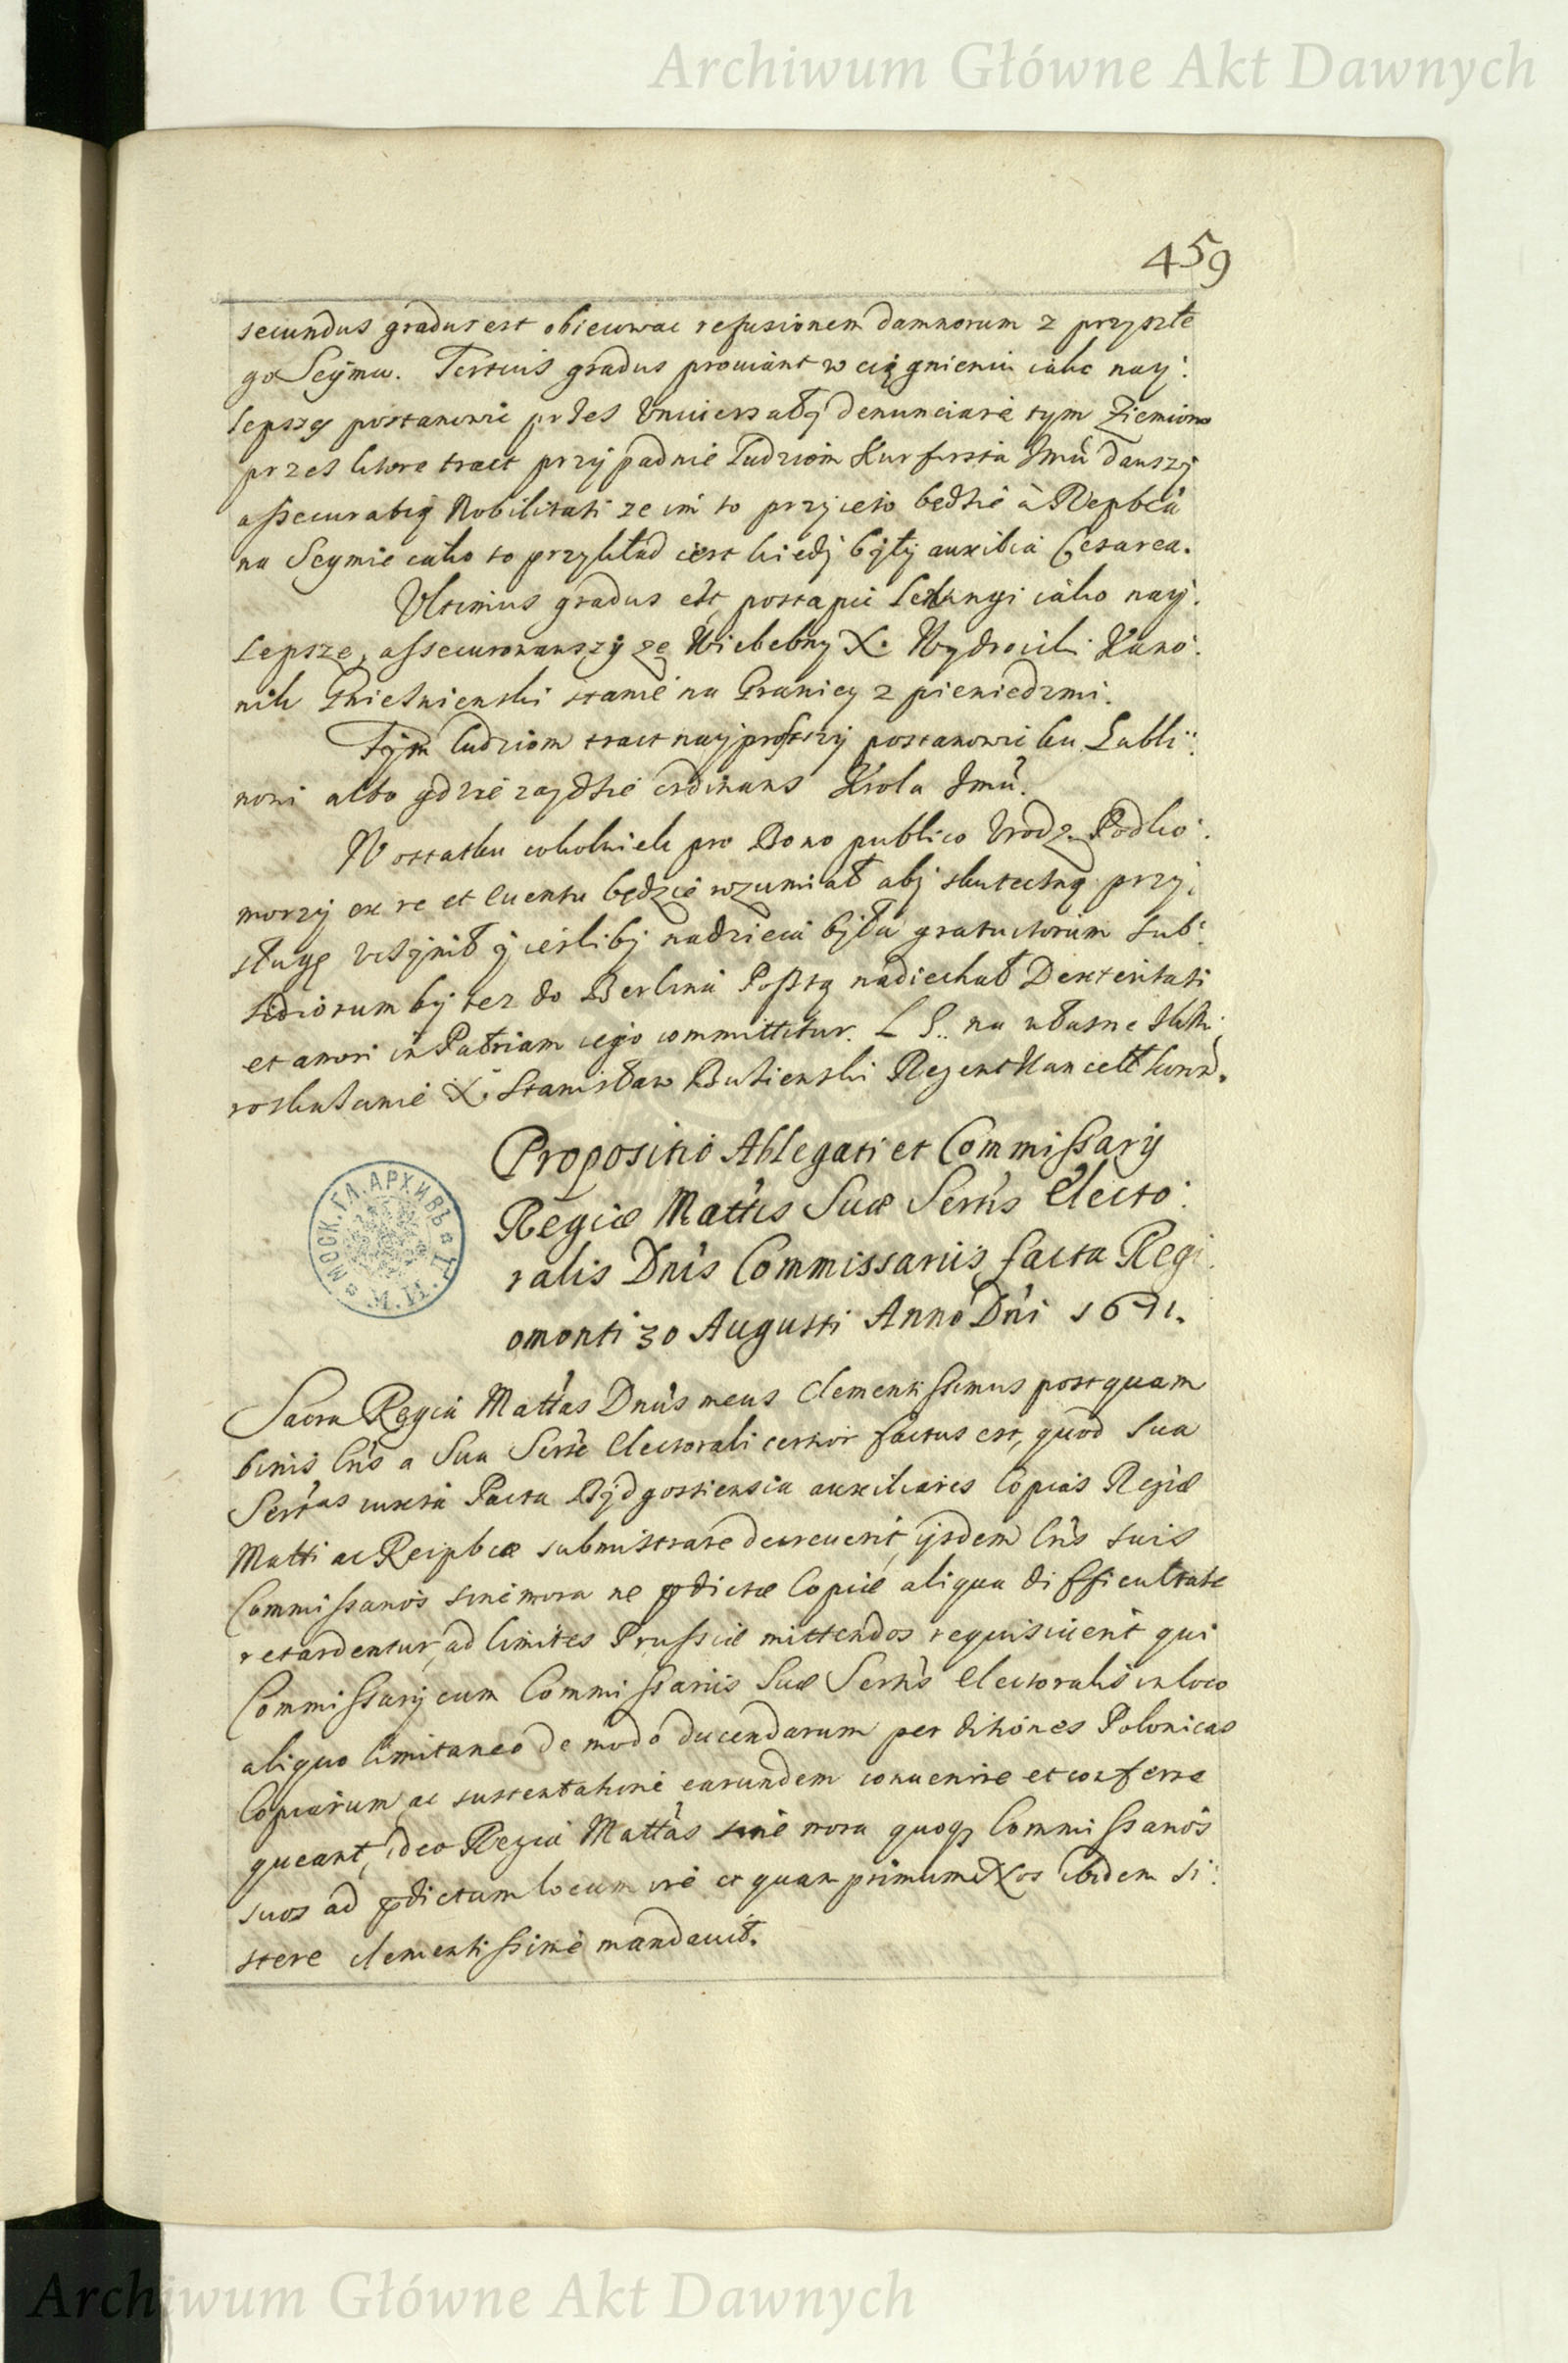 Archiwum Główne Akt Dawnych
459
secundus gradus est obiecowac refusionem damnorum z przyszłe
go Seÿmu. Tertius gradus prowiant w ciągnieniu iako nay:
lepszy postanowic przes Vniuersały denunciare tym Ziemiom
przes ktore tract przypadnie Ludziom Kurfirsta Jmċi dawszy
assecuratią Nobilitati ze im to przyieto będzie à Repbca
na Seymie iako to przykład iest kiedy były auxilia Cesarea.
Vltimus gradus est, postąpic iako nay:
lepsze, assecurowawszy ze Wielebny X. Wydrzicki Kano:
nik Gnieznienski stanie na Granicy z pieniedzmi.
Tym ludziom tract nayprostszy postanowic ku Lubli:
nowi albo gdzie zaydzie ordinans Krola Jmċi.
W ostatku cokolwiek pro Bono publico Vrodz. Podko:
morzy ex re et euentu będzie rozumiał aby skuteczną przy:
sługę vczynił y iesliby nadzieia była gratuitorum sub:
sidiorum by tez do Berlina Posztą nadiechał Dexteritati
et amori in Patriam iego committitur. L S. na własne JKMċi
roskazanie X. Stanisław Buzienski Regent Kancell koron.
Propositio Ablegati et Commissarÿ
Regiæ Mattis Suæ Sertis Electo:
ralis Dnis Commissariis facta Regi
omonti 30 Augusti Anno Dni 1671.
МОСК. ГЛ. АРХИВЪ М. И. Д.
Sacra Regia Mattas Dnus meus Clementissimus postquam
binis Lris a Sua Serte Electorali certior factus est, quod Sua
Sertas iuxta Pacta Bÿdgostiensia auxiliares Copias Regiæ
Matti ac Reipbcæ submistrare decreuerit, ijsdem Lris suis
Commissarios sine mora ne pdictæ Copiæ aliqua difficultate
retardentur, ad limites Prussiæ mittendos requisiuerit qui
Commissarij cum Commissariis Suæ Sertis Electoralis in loco
aliquo limitaneo de modo ducendarum per ditiones Polonicas
Copiarum ac sustentatione earundem conuenire et conferre
queant, ideo Regia Mattas sine mora quoq Commissarios
suos ad pdictum locum ire et quam primum Nos ibidem si:
stere clementissime mandauit.
Archiwum Główne Akt Dawnych